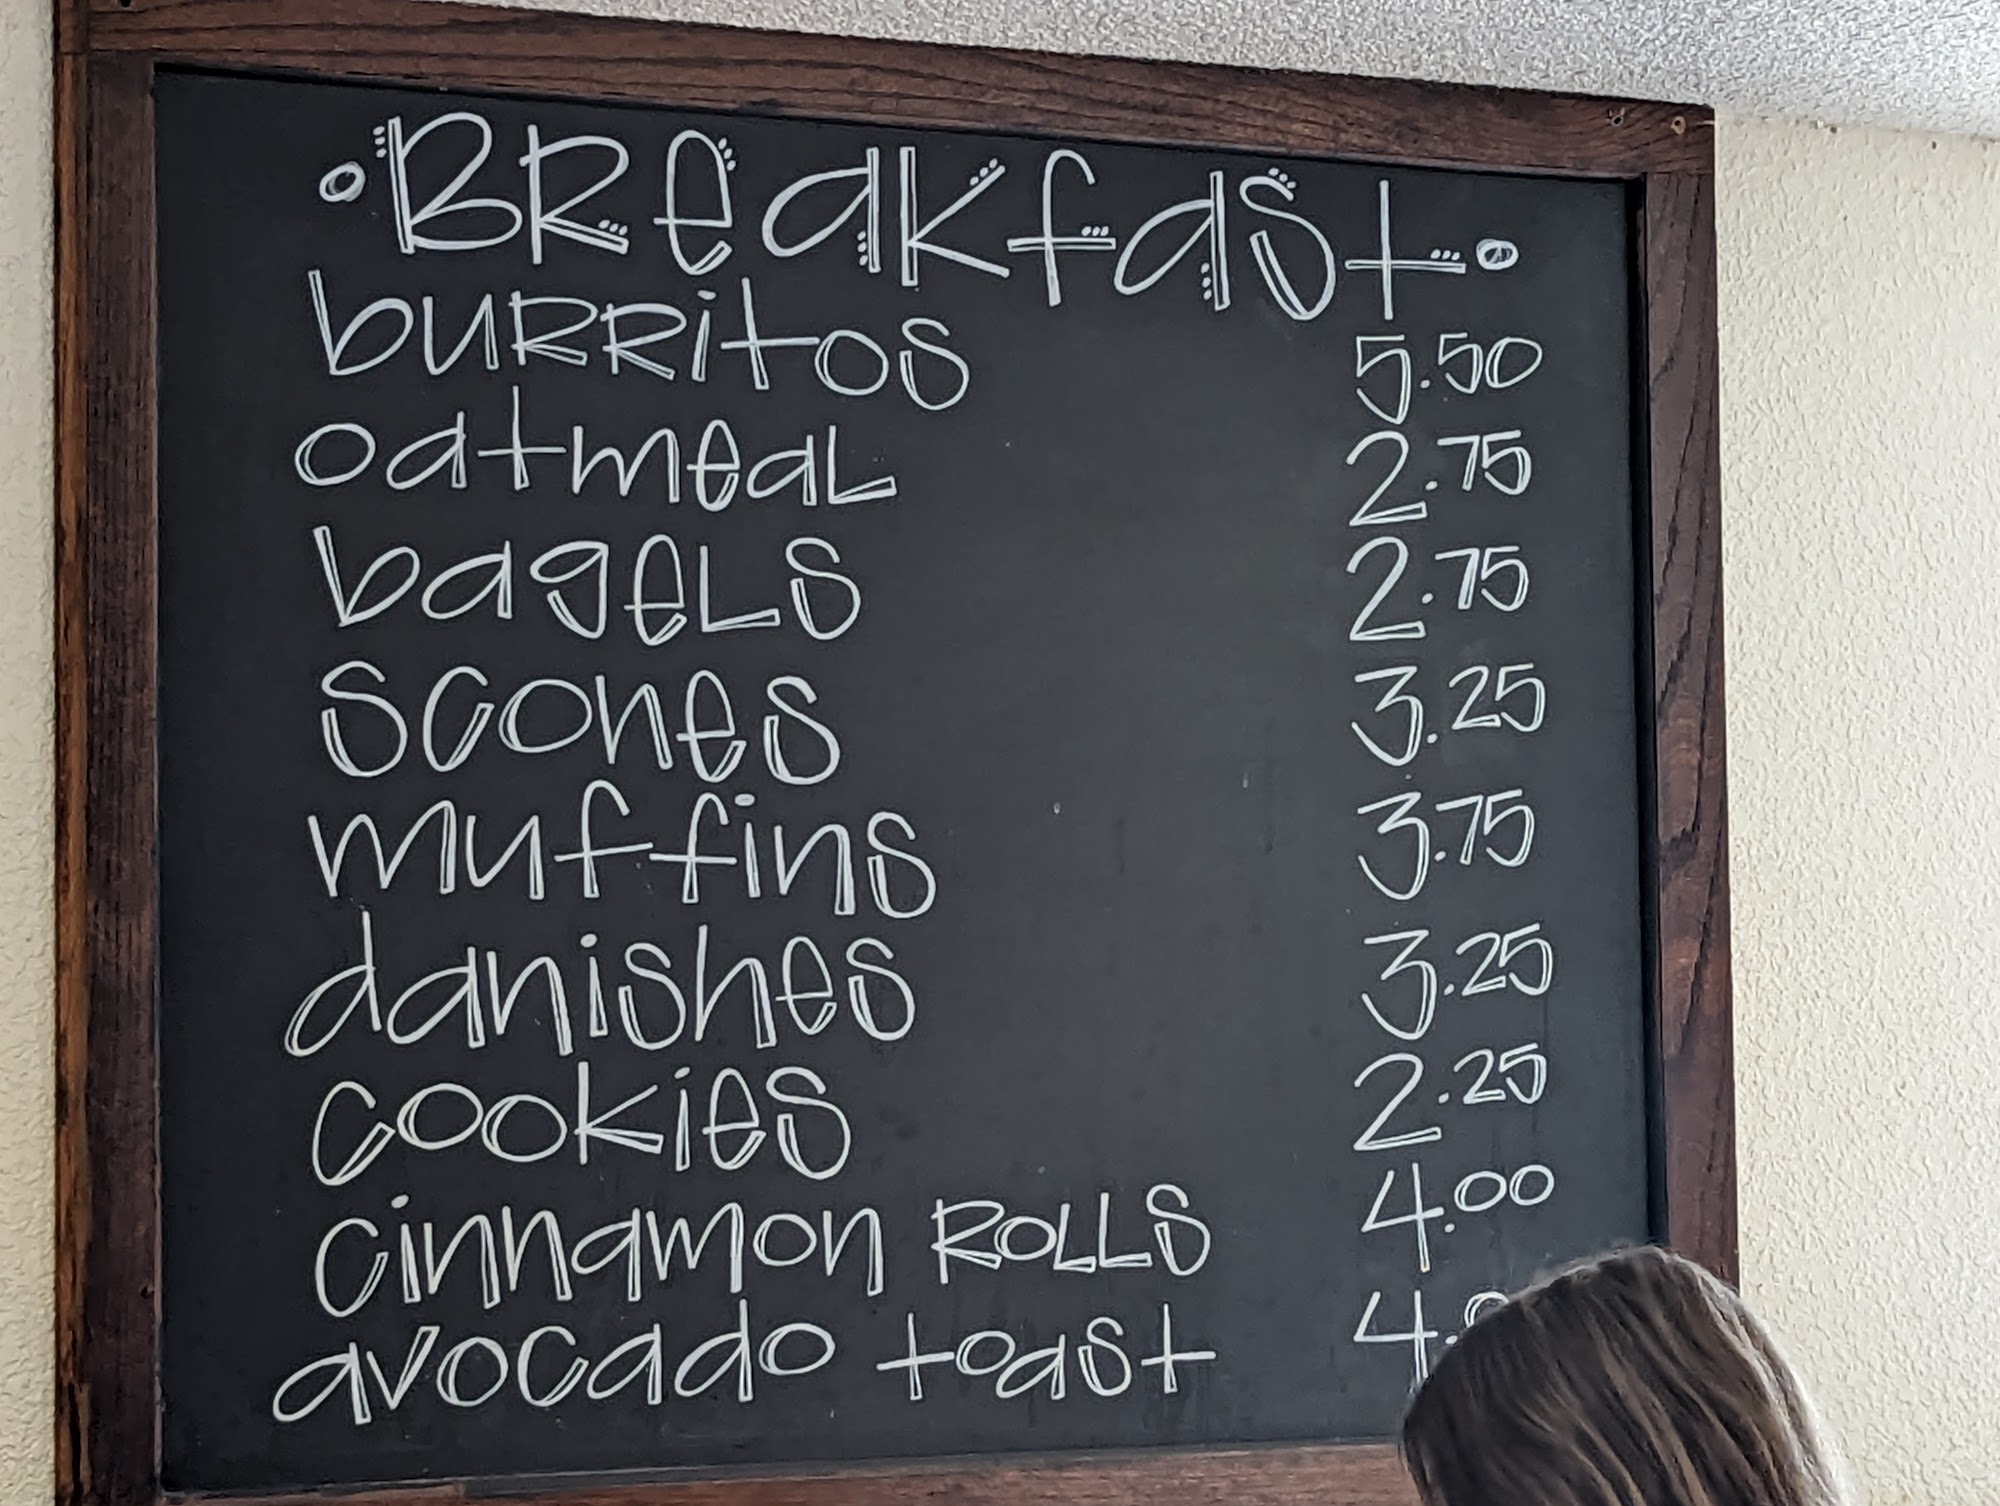 Breakfast
burritos 5.50
oatmeal 2.75
bagels 2.75
scones 3.25
muffins 3.75
danishes 3.25
cookies 2.25
cinnamon rolls 4.00
avocado toast